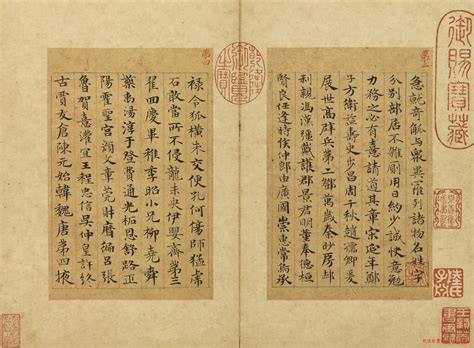 御賜寶藏
急就奇觚與眾異羅列諸物名姓字
分別部居不雜厠用約少誠快意勉
力務之必有憙請道其章宋延年鄭
子方衛益壽史步昌周千秋趙孺卿爰
展世高辟兵第二鄧萬歲秦妙房郝
利親馮漢彊戴護郡景君明董奉德桓
賢良任逢時侯仲郎由廣國榮惠常烏承
祿令狐橫朱交便孔何傷師猛虎
石敢當所不侵龍未央伊嬰齊第三
翟回慶畢稚季昭小兄柳堯舜
藥禹湯淳于登費通光柘恩舒路正
陽霍聖宮顏文章莞財曆偏呂張
魯賀憙灌宜王程忠信吳仲皇許終
古賈友倉陳元始韓魏唐第四掖